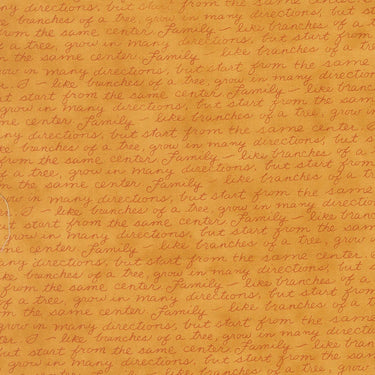 ny directions, but start from the same center. Fa
of a tree, grow in many directions, but start
from the same center. Family — like branches of
a tree, grow in many directions, but start from
the same center. Family — like branches
w in many directions, but start from the same
ter. I — like branches of a tree, grow in many directions
t start from the same center. Family — like branches
grow in many directions, but start from the same
center Family — like branches of a tree, grow in
y directions, but start from the same center.
ke branches of a tree, grow in many directions, but
from the same center. Family — like branches of a
of a tree, grow in many directions, but start
from the same center. Family — like branches
I — like branches of a tree, grow in many directions, but
start from the same center. Family — like
center. Family — like branches of a tree, grow
many directions, but start from the same center.
ke branches of a tree, grow in many directions, but
from the same center. Family — like branches of
of a tree, grow in many directions, but start from
the same center. Family — like branches of a tree
grow in many directions, but start from the same
ter. I — like branches of a tree, grow in many directions
but start from the same center. Family — like branches
many directions, but start from the same